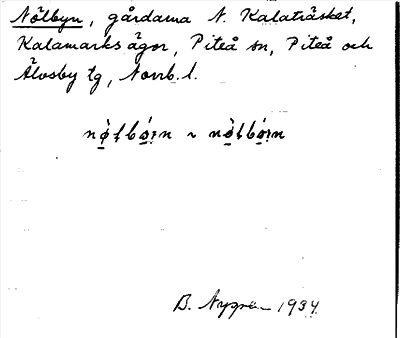 Nölbyn, gårdarna N. Kalaträsket,
Kalamarks ägor, Piteå sn, Piteå och
Älvsby tg, Norrb. l.
B. Nygren 1934